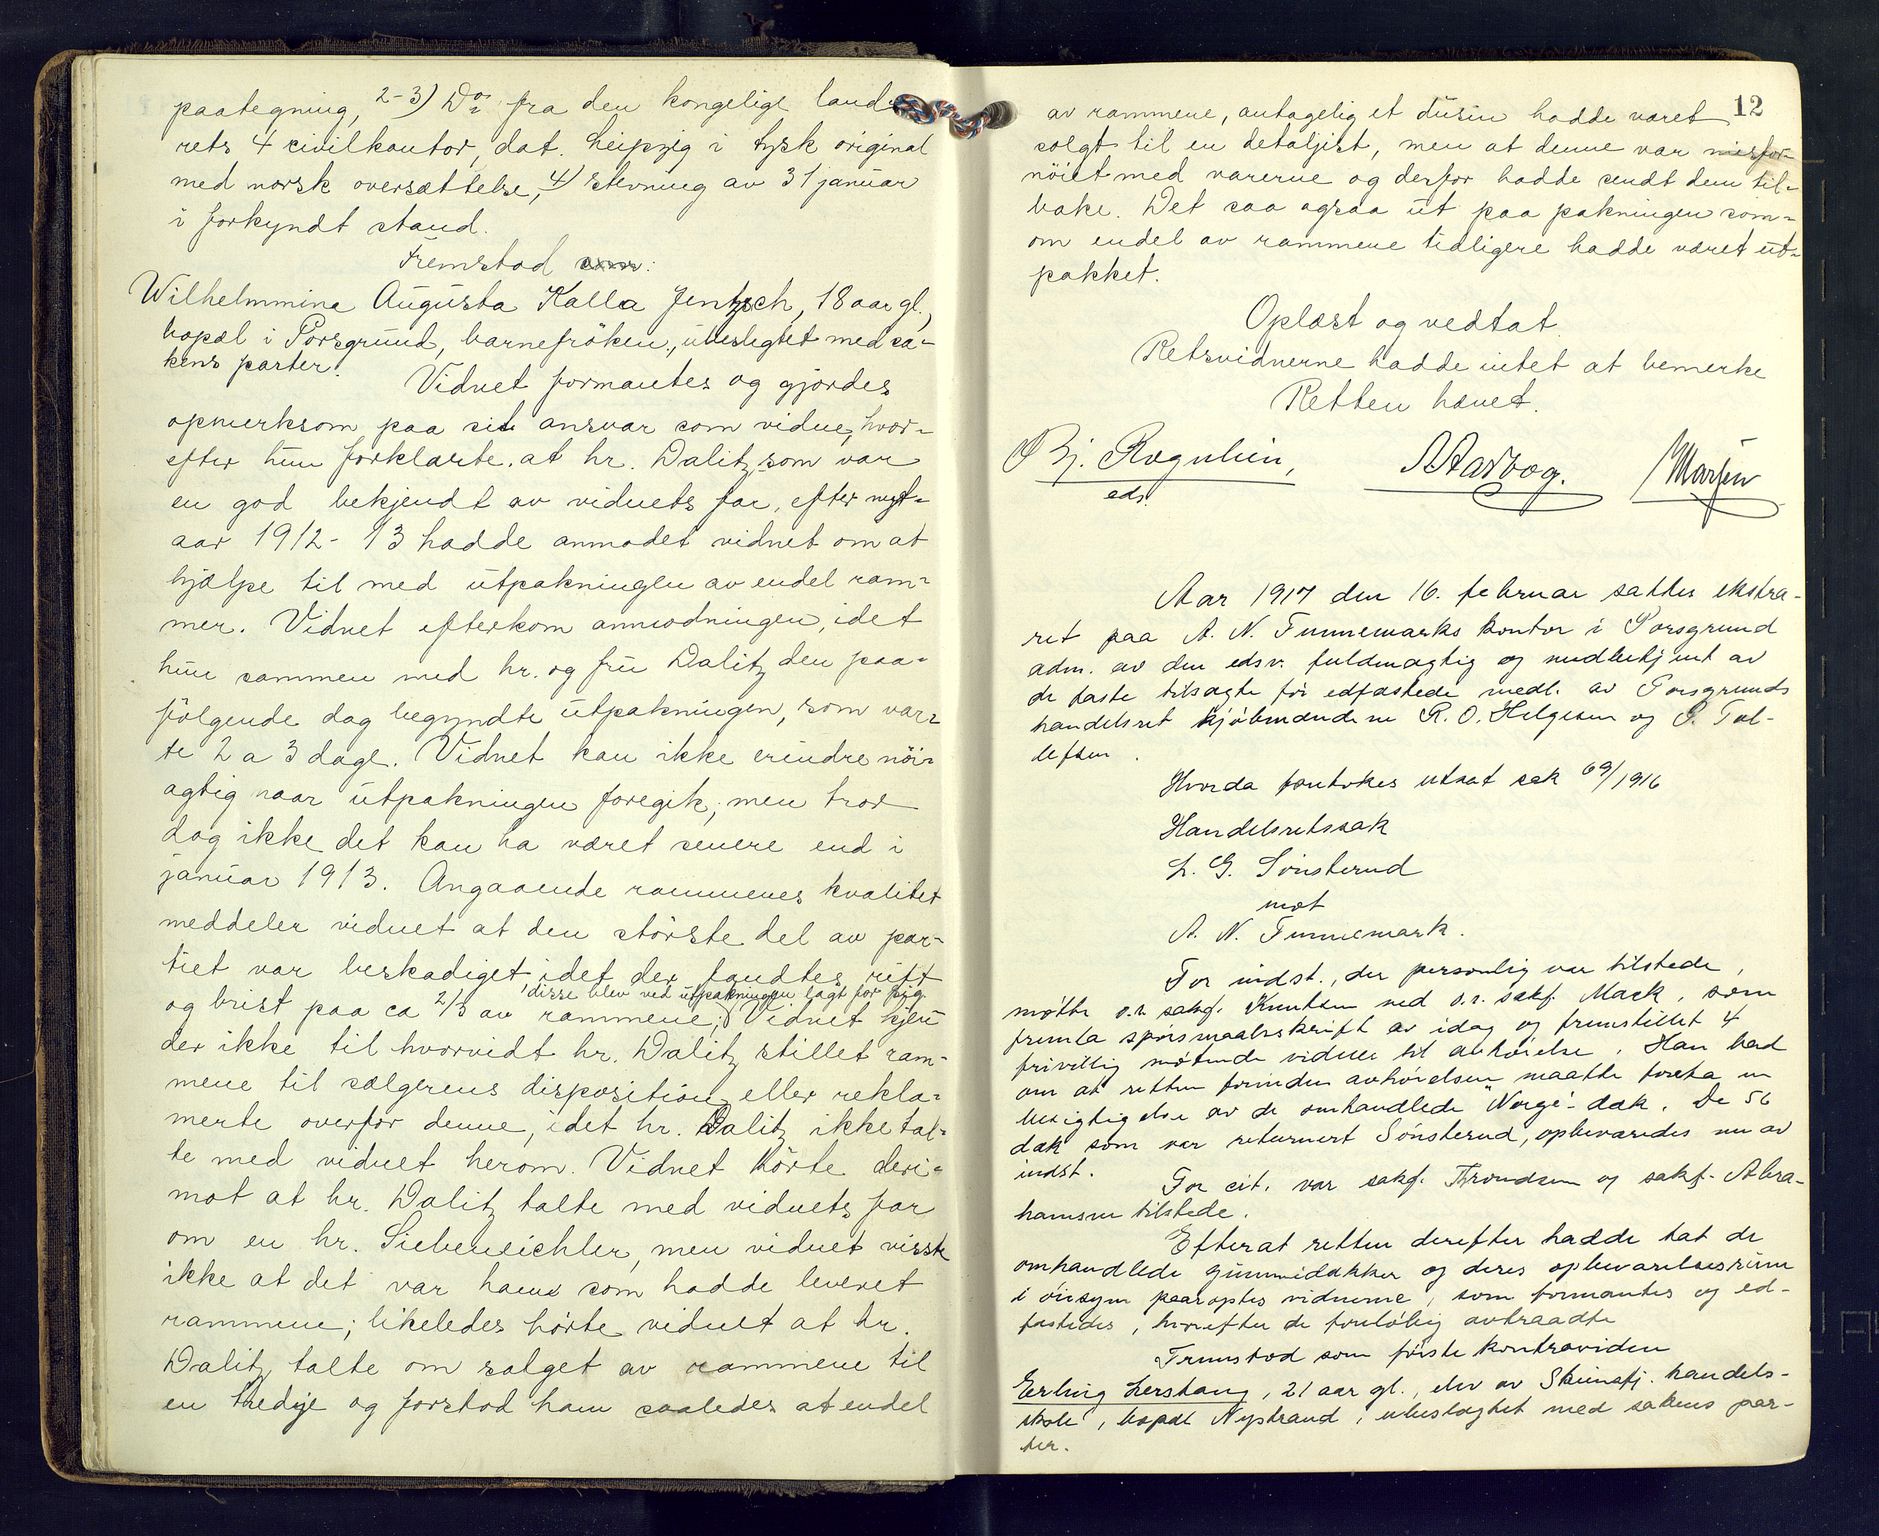 paategning, 2-3) Do fra den kongelige land-
rets 4 civilkantor, dat. Leipzig i tysk original
med norsk oversættelse, 4) Stevning av 31 januar
i forkyndt stand.
Fremstod
Wilhelmmine Augusta Kalla Jentzsch, 18 aar gl.,
bopæl i Porsgrund, barnefröken, ubeslegtet med sa-
kens parter.
Vidnet formantes og gjordes
opmerksom paa sit ansvar som vidne, hvor-
efter hun forklarte, at hr. Dalitz som var
en god bekjendt av vidnets far, efter nyt-
aar 1912-13 hadde anmodet vidnet om at
hjælpe til med utpakningen av endel ram-
mer. Vidnet efterkom anmodningen, idet
hun sammen med hr. og fru Dalitz den paa-
fölgende dag begyndte utpakningen, som var-
te 2 a 3 dage. Vidnet kan ikke erindre nöi-
agtig naar utpakningen foregik, men tror
dog ikke det kan ha været senere end i
januar 1913. Angaaende rammenes kvalitet
meddeler vidnet at den störste del av par-
tiet var beskadiget, idet der fandtes rift
, disse blev ved utpakningen lagt for sig.
og brist paa ca 2/3 av rammene; Vidnet kjen
der ikke til hvorvidt hr. Dalitz stillet ram-
mene til sælgerens disposition eller rekla-
merte overfor denne, idet hr. Dalitz ikke tal-
te med vidnet herom. Vidnet hörte deri-
mot at hr. Dalitz talte med vidnets far
om en hr. Siebeneichler, men vidnet visste
ikke at det var ham som hadde leveret
rammene; likeledes hörte vidnet at hr.
Dalitz talte om salget av rammene til
en tredje og forstod ham saaledes at endel
12
av rammene, antagelig et dusin hadde været
solgt til en detaljist, men at denne var misfor-
nöiet med varerne og derfor hadde sendt dem til-
bake. Det saa ogsaa ut paa pakningen som-
om endel av rammene tidligere hadde været ut-
pakket.
Oplæst og vedtat.
Retsvidnerne hadde intet at bemerke
Retten hævet.
Bj. Rognlien, A Aarvog.
eds.
Aar 1917 den 16. februar sattes ekstra-
ret paa A. N. Tunnemarks kontor i Porsgrund
adm. av den edsv. fuldmægtig og medbetjent av
de faste tilsagte før edfæstede medl. av Porsgrunds
handelsret kjøbmændene R. O. Helgesen og P. Tol-
lefsen.
Hvorda foretokes utsat sak 69/1916
Handelsretssak
L. G. Sønsterud
mot
A. N. Tunnemark.
For indst., der personlig var tilstede,
møtte o.r. sakf. Knutsen ved o.r. sakf. Mack, som
fremla spørsmaalsskrift av idag og fremstillet 4
frivillig møtende vidner til avhørelse. Han bad
om at retten forinden avhørelsen maatte foreta en
besigtigelse av de omhandlede "Norge"- dæk. De 56
dæk som var returnert Sønsterud, opbevaredes nu av
indst.
For cit. var sakf. Trondsen og sakf. Abra-
hamsen tilstede.
Efterat retten derefter hadde tat de
omhandlede gummidækker og deres opbevarelsesrum
i øiesyn paaroptes vidnerne, som formantes og ed-
fæstedes, hvorefter de foreløbig avtraadte
Fremstod som første kontraviden
Erling Lerstang, 21 aar gl., elev av Skiensfj. handels-
skole, bopæl Nystrand, ubeslægtet med sakens par-
ter.